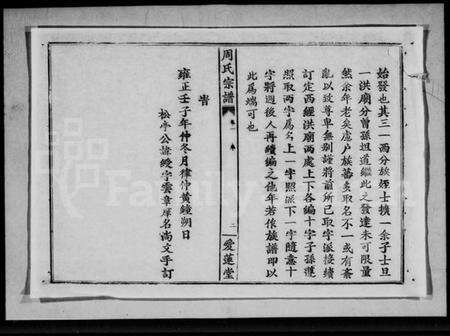 始發也其三一兩分族姪士橫一余子士旦
一洪廟分曾孫坦道繼此之發達未可限量
然余年老矣處户族蕃多取名不一或有紊
亂以致尊卑無别謹將前所已取字派接續
訂定西經洪廟兩處上下各編十字子孫遵
照取兩字爲名上一字照派下一字隨意十
字將週後人再續編之他年若修族譜即以
此爲端可也
周氏宗譜
卷一
二
愛蓮堂
旹
雍正壬子年仲冬月律仲黃鐘朔日
松亭公諱綬字雲章庠名尚文手訂